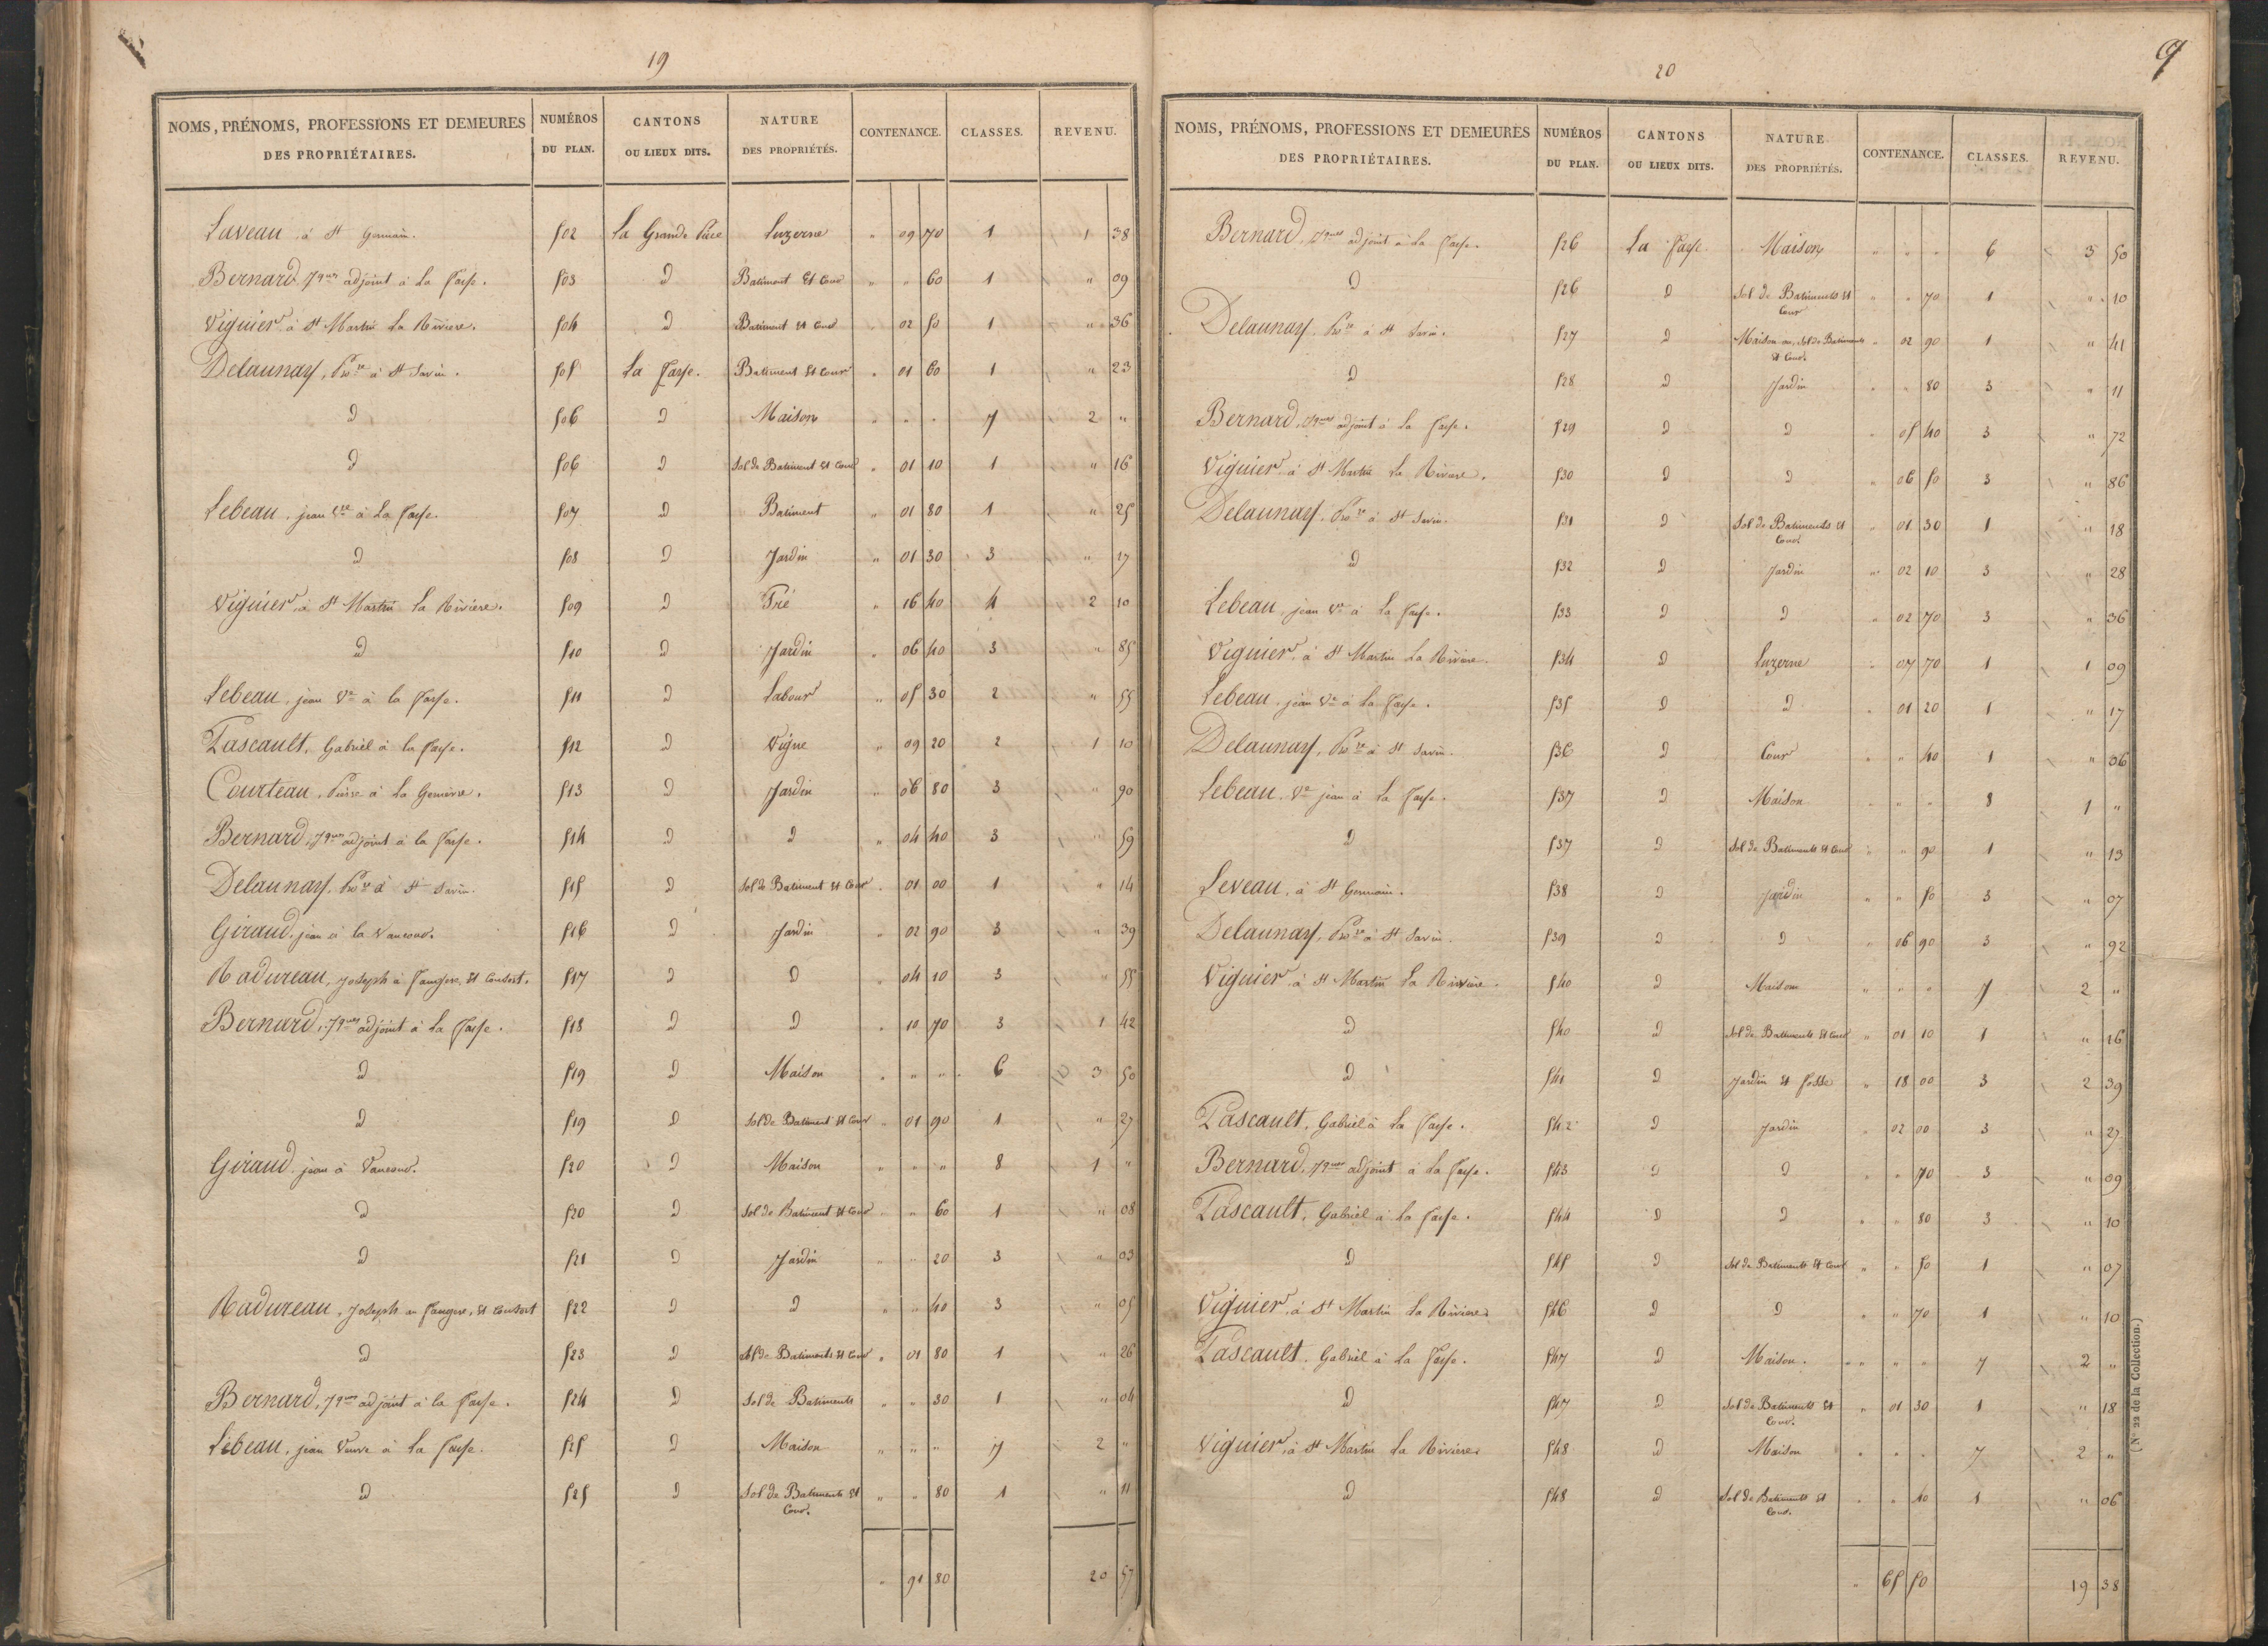 19
NOMS, PRÉNOMS, PROFESSIONS ET DEMEURES DES PROPRIÉTAIRES. NUMÉROS DU PLAN. CANTONS OU LIEUX DITS. NATURE DES PROPRIÉTÉS. CONTENANCE. CLASSES. REVENU.
Laveau à St Germain. 502 La Grande Luzerne " 09 70 1 1 38
Bernard, Jques adjoint à La Faije. 503 D Batiment Et Cour " " 60 1 " 09
Viguier à St Martin La Riviere. 504 D Batiment Et Cour " 02 50 1 " 36
Delaunay, Pre à St Savin. 505 La Faije. Batiment Et Cour " 01 60 1 " 23
D 506 D Maison " " " 7 2 "
D 506 D Sol de Batiment Et Cour " 01 10 1 " 16
Lebeau, jean Ve à La Faije. 507 D Batiment " 01 80 1 " 25
D 508 D Jardin " 01 30 3 " 17
Viguier à St Martin La Riviere. 509 D Pré " 16 40 4 2 10
D 510 D Jardin " 06 40 3 " 85
Lebeau, jean Ve à la Faije. 511 D Labour " 05 30 2 " 55
Pascault, Gabriel à la Faije. 512 D Vigne " 09 20 2 1 10
Courteau, Pierre à La 513 D Jardin " 06 80 3 " 90
Bernard, Jques adjoint à la Faije. 514 D D " 04 40 3 " 59
Delaunay, Pre à St Savin. 515 D Sol de Batiment Et Cour " 01 00 1 " 14
Giraud, jean à la Vancour. 516 D Jardin " 02 90 3 " 39
Radureau, Joseph à Faugere, Et Consort. 517 D D " 04 10 3 " 55
Bernard, Jques adjoint à La Faije. 518 D D " 10 70 3 1 42
D 519 D Maison " " " 6 3 50
D 519 D Sol de Batiment Et Cour " 01 90 1 " 27
Giraud, jean à Vancour. 520 D Maison " " " 8 1 "
D 520 D Sol de Batiment Et Cour " " 60 1 " 08
D 521 D Jardin " " 20 3 " 03
Radureau, Joseph au Faugere, Et Consort 522 D D " " 40 3 " 05
D 523 D Sol de Batiments Et Cour " 01 80 1 " 26
Bernard, Jques adjoint à la Faije. 524 D Sol de Batiments " " 30 1 " 04
Lebeau, jean Veuve à La Faije. 525 D Maison " " " 7 2 "
D 525 D Sol de Batiments Et Cour. " " 80 1 " 11
" 91 80 20 57
20
9
NOMS, PRÉNOMS, PROFESSIONS ET DEMEURES DES PROPRIÉTAIRES. NUMÉROS DU PLAN. CANTONS OU LIEUX DITS. NATURE DES PROPRIÉTÉS. CONTENANCE. CLASSES. REVENU.
Bernard, Jques adjoint à La Faije. 526 La Faije Maison " " " 6 3 50
D 526 D Sol de Batiments Et Cour " " 70 1 " 10
Delaunay, Pre à St Savin. 527 D Maison Sol de Batiments Et Cour. " 02 90 1 " 41
D 528 D Jardin " " 80 3 " 11
Bernard, Jques adjoint à La Faije. 529 D D " 05 40 3 " 72
Viguier à St Martin La Riviere. 530 D D " 06 50 3 " 86
Delaunay, Pre à St Savin. 531 D Sol de Batiments Et Cour " 01 30 1 " 18
D 532 D Jardin " 02 10 3 " 28
Lebeau, jean Ve à La Faije. 533 D D " 02 70 3 " 36
Viguier, à St Martin La Riviere. 534 D Luzerne " 07 70 1 1 09
Lebeau, jean Ve à La Faije. 535 D D " 01 20 1 " 17
Delaunay, Pre à St Savin. 536 D Cour " " 40 1 " 06
Lebeau, Ve jean à La Faije. 537 D Maison " " " 8 1 "
D 537 D Sol de Batiments Et Cour " " 90 1 " 13
Leveau, à St Germain. 538 D Jardin " " 50 3 " 07
Delaunay, Pre à St Savin. 539 D D " 06 90 3 " 92
Viguier, à St Martin La Riviere. 540 D Maison " " " 7 2 "
D 540 D Sol de Batiments Et Cour " 01 10 1 " 16
D 541 D Jardin Et fosse " 18 00 3 2 39
Pascault, Gabriel à La Faije. 542 D Jardin " 02 00 3 " 27
Bernard, Jques adjoint à La Faije. 543 D D " " 70 3 " 09
Pascault, Gabriel à La Faije. 544 D D " " 80 3 " 10
D 545 D Sol de Batiments Et Cour " " 50 1 " 07
Viguier, à St Martin La Riviere. 546 D D " " 70 1 " 10
Pascault, Gabriel à La Faije. 547 D Maison. " " " 7 2 "
D 547 D Sol de Batiments Et Cour. " 01 30 1 " 18
Viguier, à St Martin La Riviere. 548 D Maison " " " 7 2 "
D 548 D Sol de Batiments Et Cour. " " 40 1 " 06
" 65 50 19 38
(N° 22 de la Collection.)